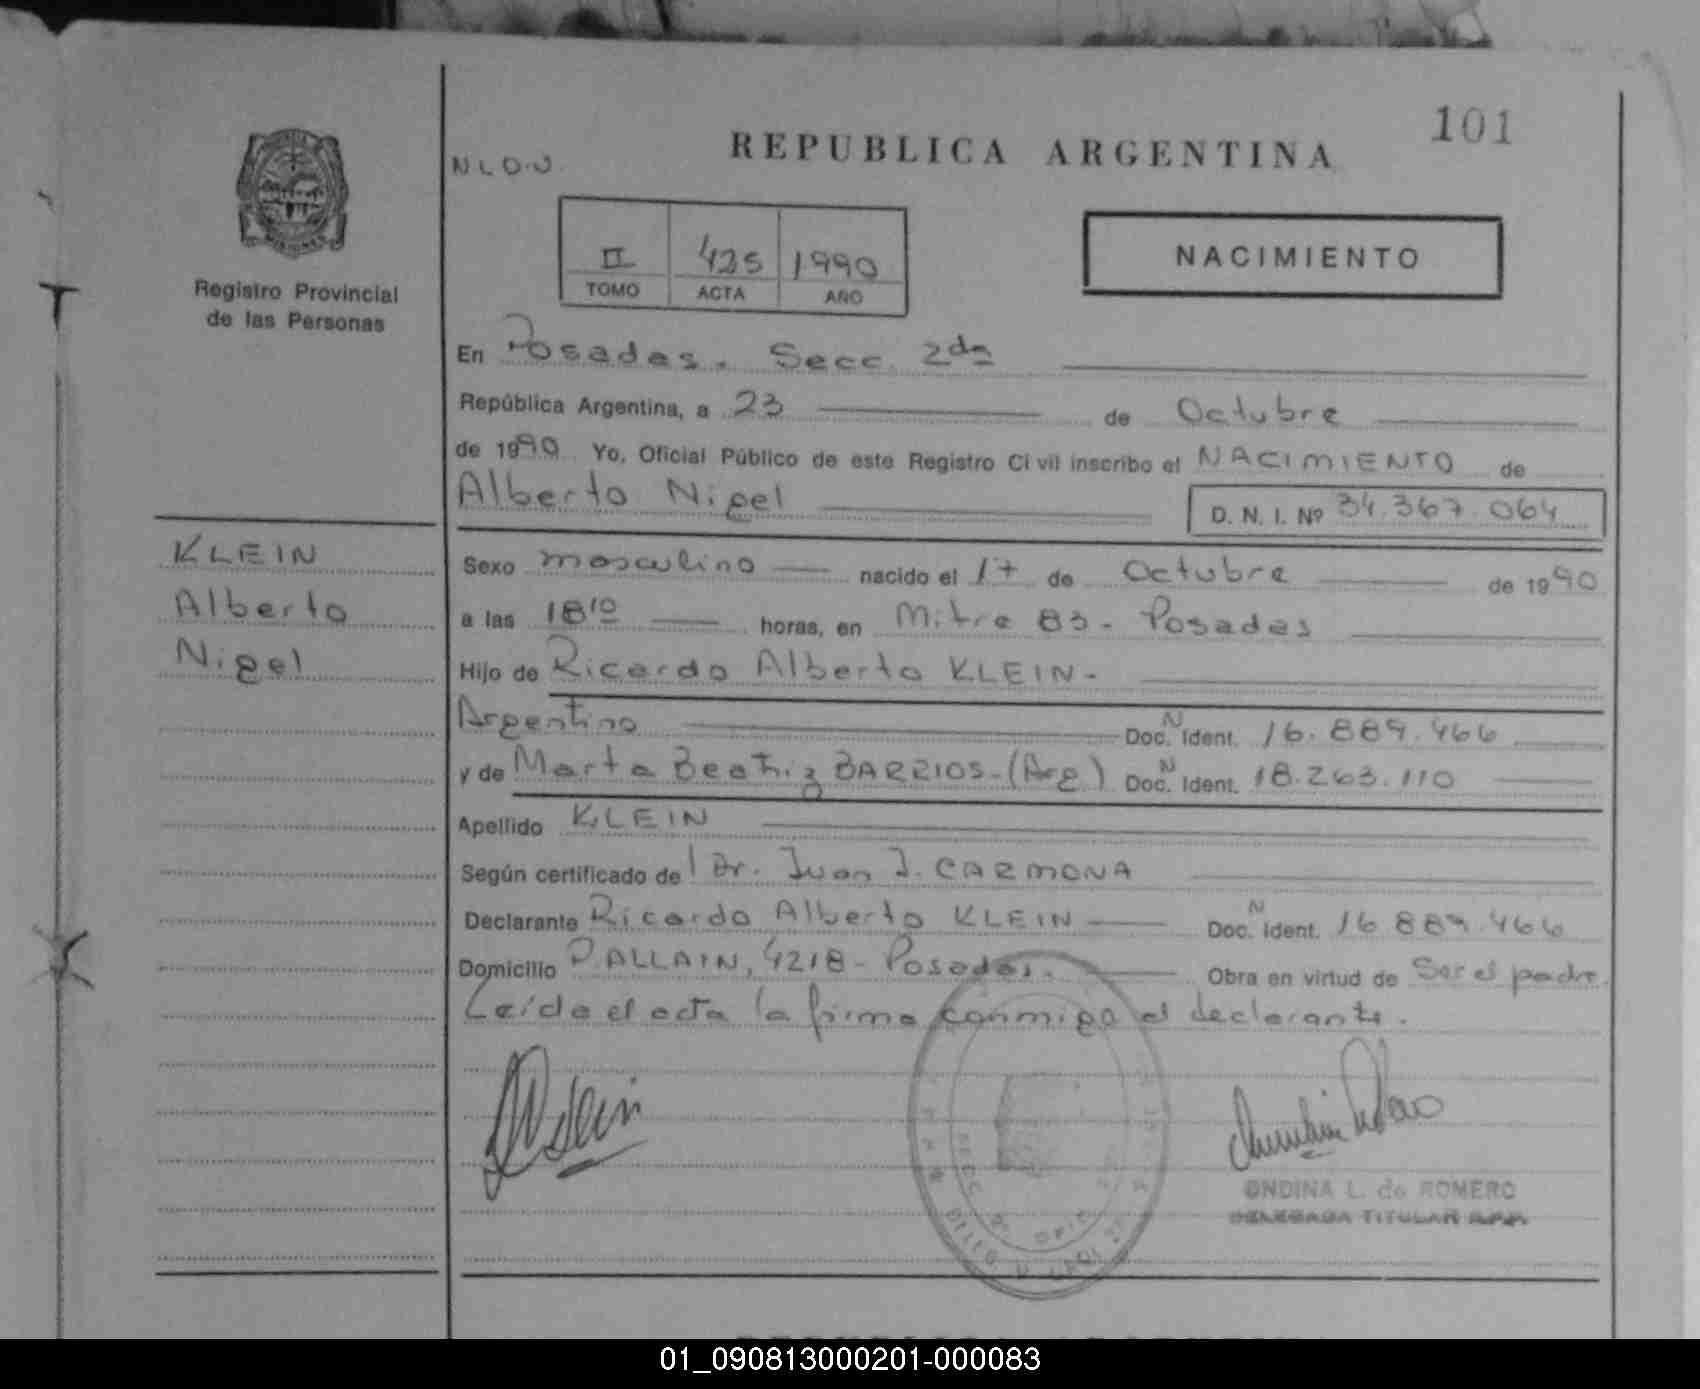 101
REPUBLICA ARGENTINA
N.L.O.N.
II 425 1990
TOMO ACTA AÑO
NACIMIENTO
MISIONES
Registro Provincial
de las Personas
En Posadas. Secc. 2da
República Argentina, a 23 de Octubre
de 1990 Yo, Oficial Público de este Registro Civil inscribo el NACIMIENTO de
Alberto Nigel D. N. I. Nº 34.367.064
KLEIN
Alberto
Nigel
Sexo masculino nacido el 17 de Octubre de 1990
a las 18 10 horas, en Mitre 83 - Posadas
Hijo de Ricardo Alberto KLEIN -
Argentino Doc. N Ident. 16.889.466
y de Marta Beatriz BARRIOS - (Arg) Doc. N Ident. 18.263.110
Apellido KLEIN
Según certificado de l Dr. Juan J. CARMONA
Declarante Ricardo Alberto KLEIN Doc. N Ident. 16 889.466
Domicilio P. ALLAIN, 4218 - Posadas. Obra en virtud de Ser el padre.
Leída el acta la firma conmigo el declarante.
ONDINA L. de ROMERO
DELEGADA TITULAR R.P.P.
01_090813000201-000083